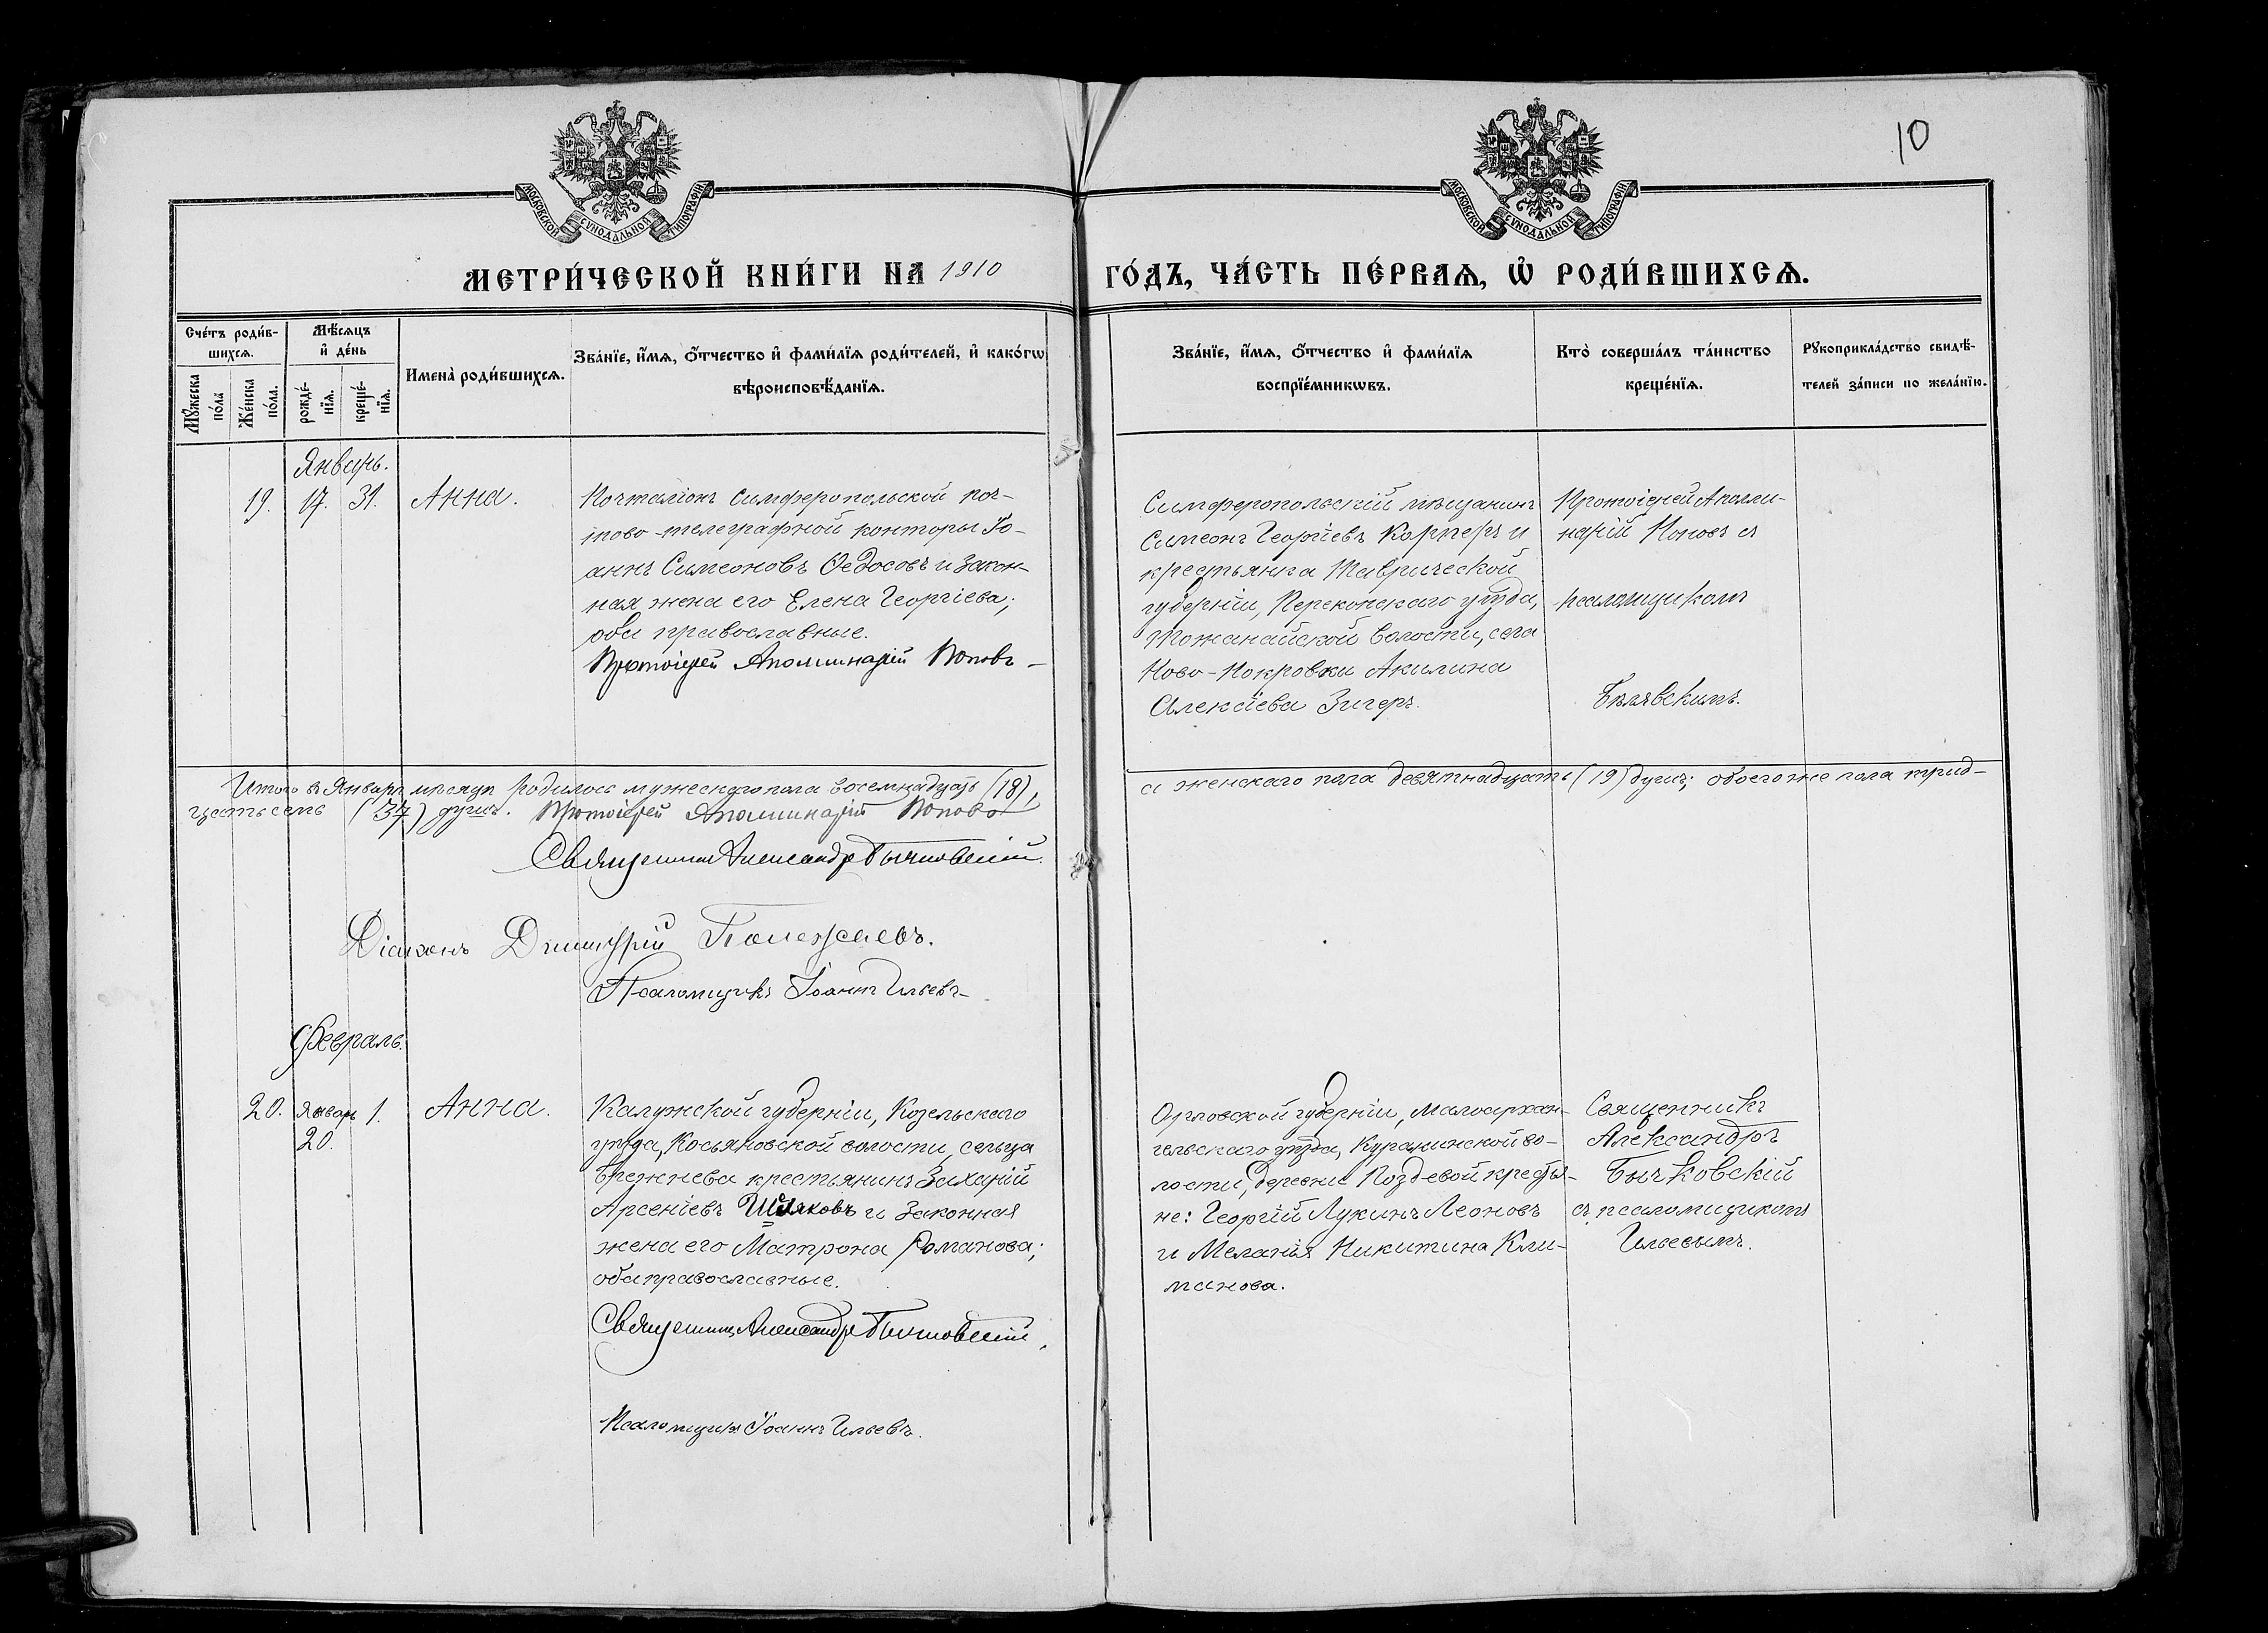 10
МОСКОВСКОЙ СѴНОДАЛЬНОЙ ТИПОГРАФІИ
МОСКОВСКОЙ СѴНОДАЛЬНОЙ ТИПОГРАФІИ
МЕТРИ́ЧЕСКОЙ КНИ́ГИ НА 1910 ГО́ДЪ, ЧА́СТЬ ПЕ́РВАѦ, Ѡ҆ РОДИ́ВШИХСѦ.
Сче́тъ роди́в-
шихсѧ.
Мꙋ́жеска
по́ла
Же́нска
по́ла.
Мѣ́сѧцъ
и҆ де́нь
рожде́-
нїѧ.
креще́-
нїѧ.
Имена̀ роди́вшихсѧ.
Зва́нїе, и҆́мѧ, ѻ҆́тчество и҆ фами́лїѧ роди́телей, и҆ како́гѡ
вѣроисповѣ́данїѧ.
Зва́нїе, и҆́мѧ, ѻ҆́тчество и҆ фами́лїѧ
воспрїе́мникѡвъ.
Кто̀ соверша́лъ та́инство
креще́нїѧ.
Рꙋкоприкла́дство свидѣ́-
телей за́писи по жела́нїю.
Январь.
19. 17. 31. Анна.
Почталіонъ Симферопольской поч-
тово-телеграфной конторы Іо-
аннъ Симеоновъ Ѳедосовъ и закон-
ная жена его Елена Георгіева;
оба православные.
Протоіерей Аполлинарій Поповъ
Симферопольскій мѣщанинъ
Симеонъ Георгіевъ Карперъ и
крестьянка Таврической
губерніи, Перекопскаго уѣзда,
волости, села
Ново-Покровки Акилина
Алексіева Зигеръ.
Протоіерей Аполли-
нарій Поповъ съ
псаломщикомъ
Бѣлявскимъ.
Итого въ Январѣ мѣсяцѣ родилось мужескаго пола восемнадцать (18),
а женскаго пола девятнадцать (19) душъ; обоего же пола трид-
цать семь (37) душъ. Протоіерей Аполлинарій Поповъ
Священникъ Александръ Бычковскій.
Діаконъ Дмитрій
Псаломщикъ Іоаннъ Ильевъ
Февраль.
20. Январ 1. Анна.
20.
Калужской губерніи, Козельскаго
уѣзда, Косьяновской волости, сельца
Брежнева крестьянинъ Захарій
Арсеніевъ и законная
жена его Матрона Романова;
оба православные.
Священникъ Александръ Бычковскій
Псаломщикъ Іоаннъ Ильевъ.
Орловской губерніи, Малоархан-
гельскаго уѣзда, Куракинской во-
лости, деревни Поздевой крестья-
не: Георгій Лукинъ Леоновъ
и Меланія Никитина Кли-
манова.
Священникъ
Александръ
Бычковскій
съ псаломщикомъ
Ильевымъ.